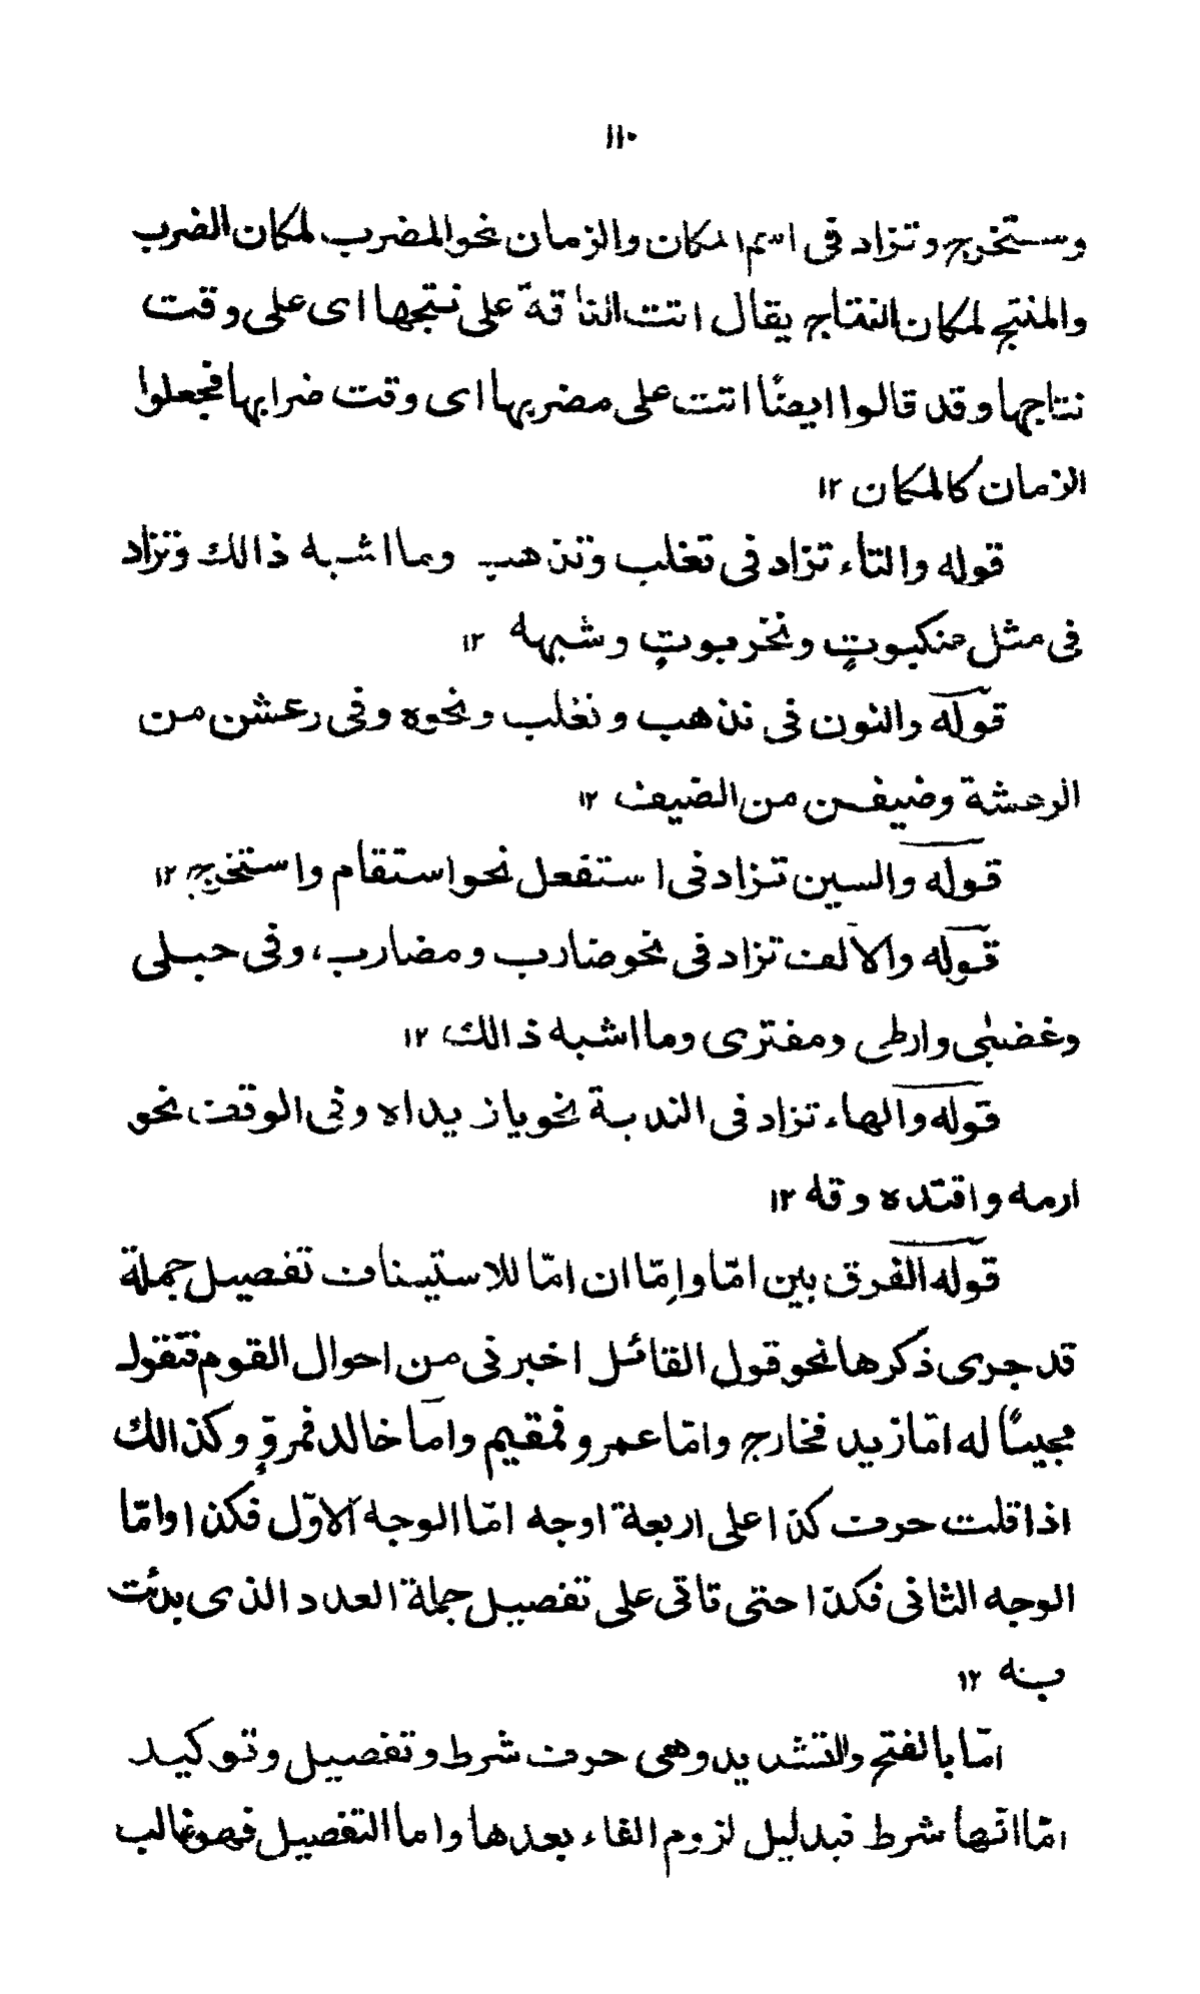 ١١٠
وستخرج وتزاد فى اسم المكان والزمان نحوالمضرب لمكان الضرب
والمنتج لمكان النتاج يقال اتت الناقة على نتجها اى على وقت
نتاجها وقد قالوا ايضًا اتت على مضربها اى وقت ضرابها فجعلوا
الزمان كالمكان ١٢
قوله والتاء تزاد فى تغلب وتذهب وما اشبه ذالك وتزاد
فى مثل عنكبوتٍ ونخربوتٍ وشبهه ١٢
قوله والنون فى نذهب ونغلب ونحوه وفى رعشن من
الرعشة وضيفن من الضيف ١٢
قوله والسين تزاد فى استفعل نحو استقام واستخرج ١٢
قوله والالف تزاد فى نحو ضارب ومضارب، وفى حبلى
وغضبٰى وارطى ومفترى وما اشبه ذالك ١٢
قوله والهاء تزاد فى الندبة نحو يازيداه وفى الوقف نحو
ارمه واقتده وقه ١٢
قوله الفرق بين امّا واِمّا ان امّا للاستيناف تفصيل جملة
قد جرى ذكرها نحو قول القائل اخبرنى من احوال القوم فتقول
مجيبًا له امّا زيد فخارج وامّا عمرو فمقيم وامّا خالد فمروٍ وكذالك
اذا قلت حرف كذا على اربعة اوجه امّا الوجه الاوّل فكذا وامّا
الوجه الثانى فكذا حتى تاتى على تفصيل جملة العدد الذى بدئت
به ١٢
امّا بالفتح والتشديد وهى حرف شرط وتفصيل وتوكيد
امّا انّها شرط فبدليل لزوم الفاء بعدها واما التفصيل فهو غالب